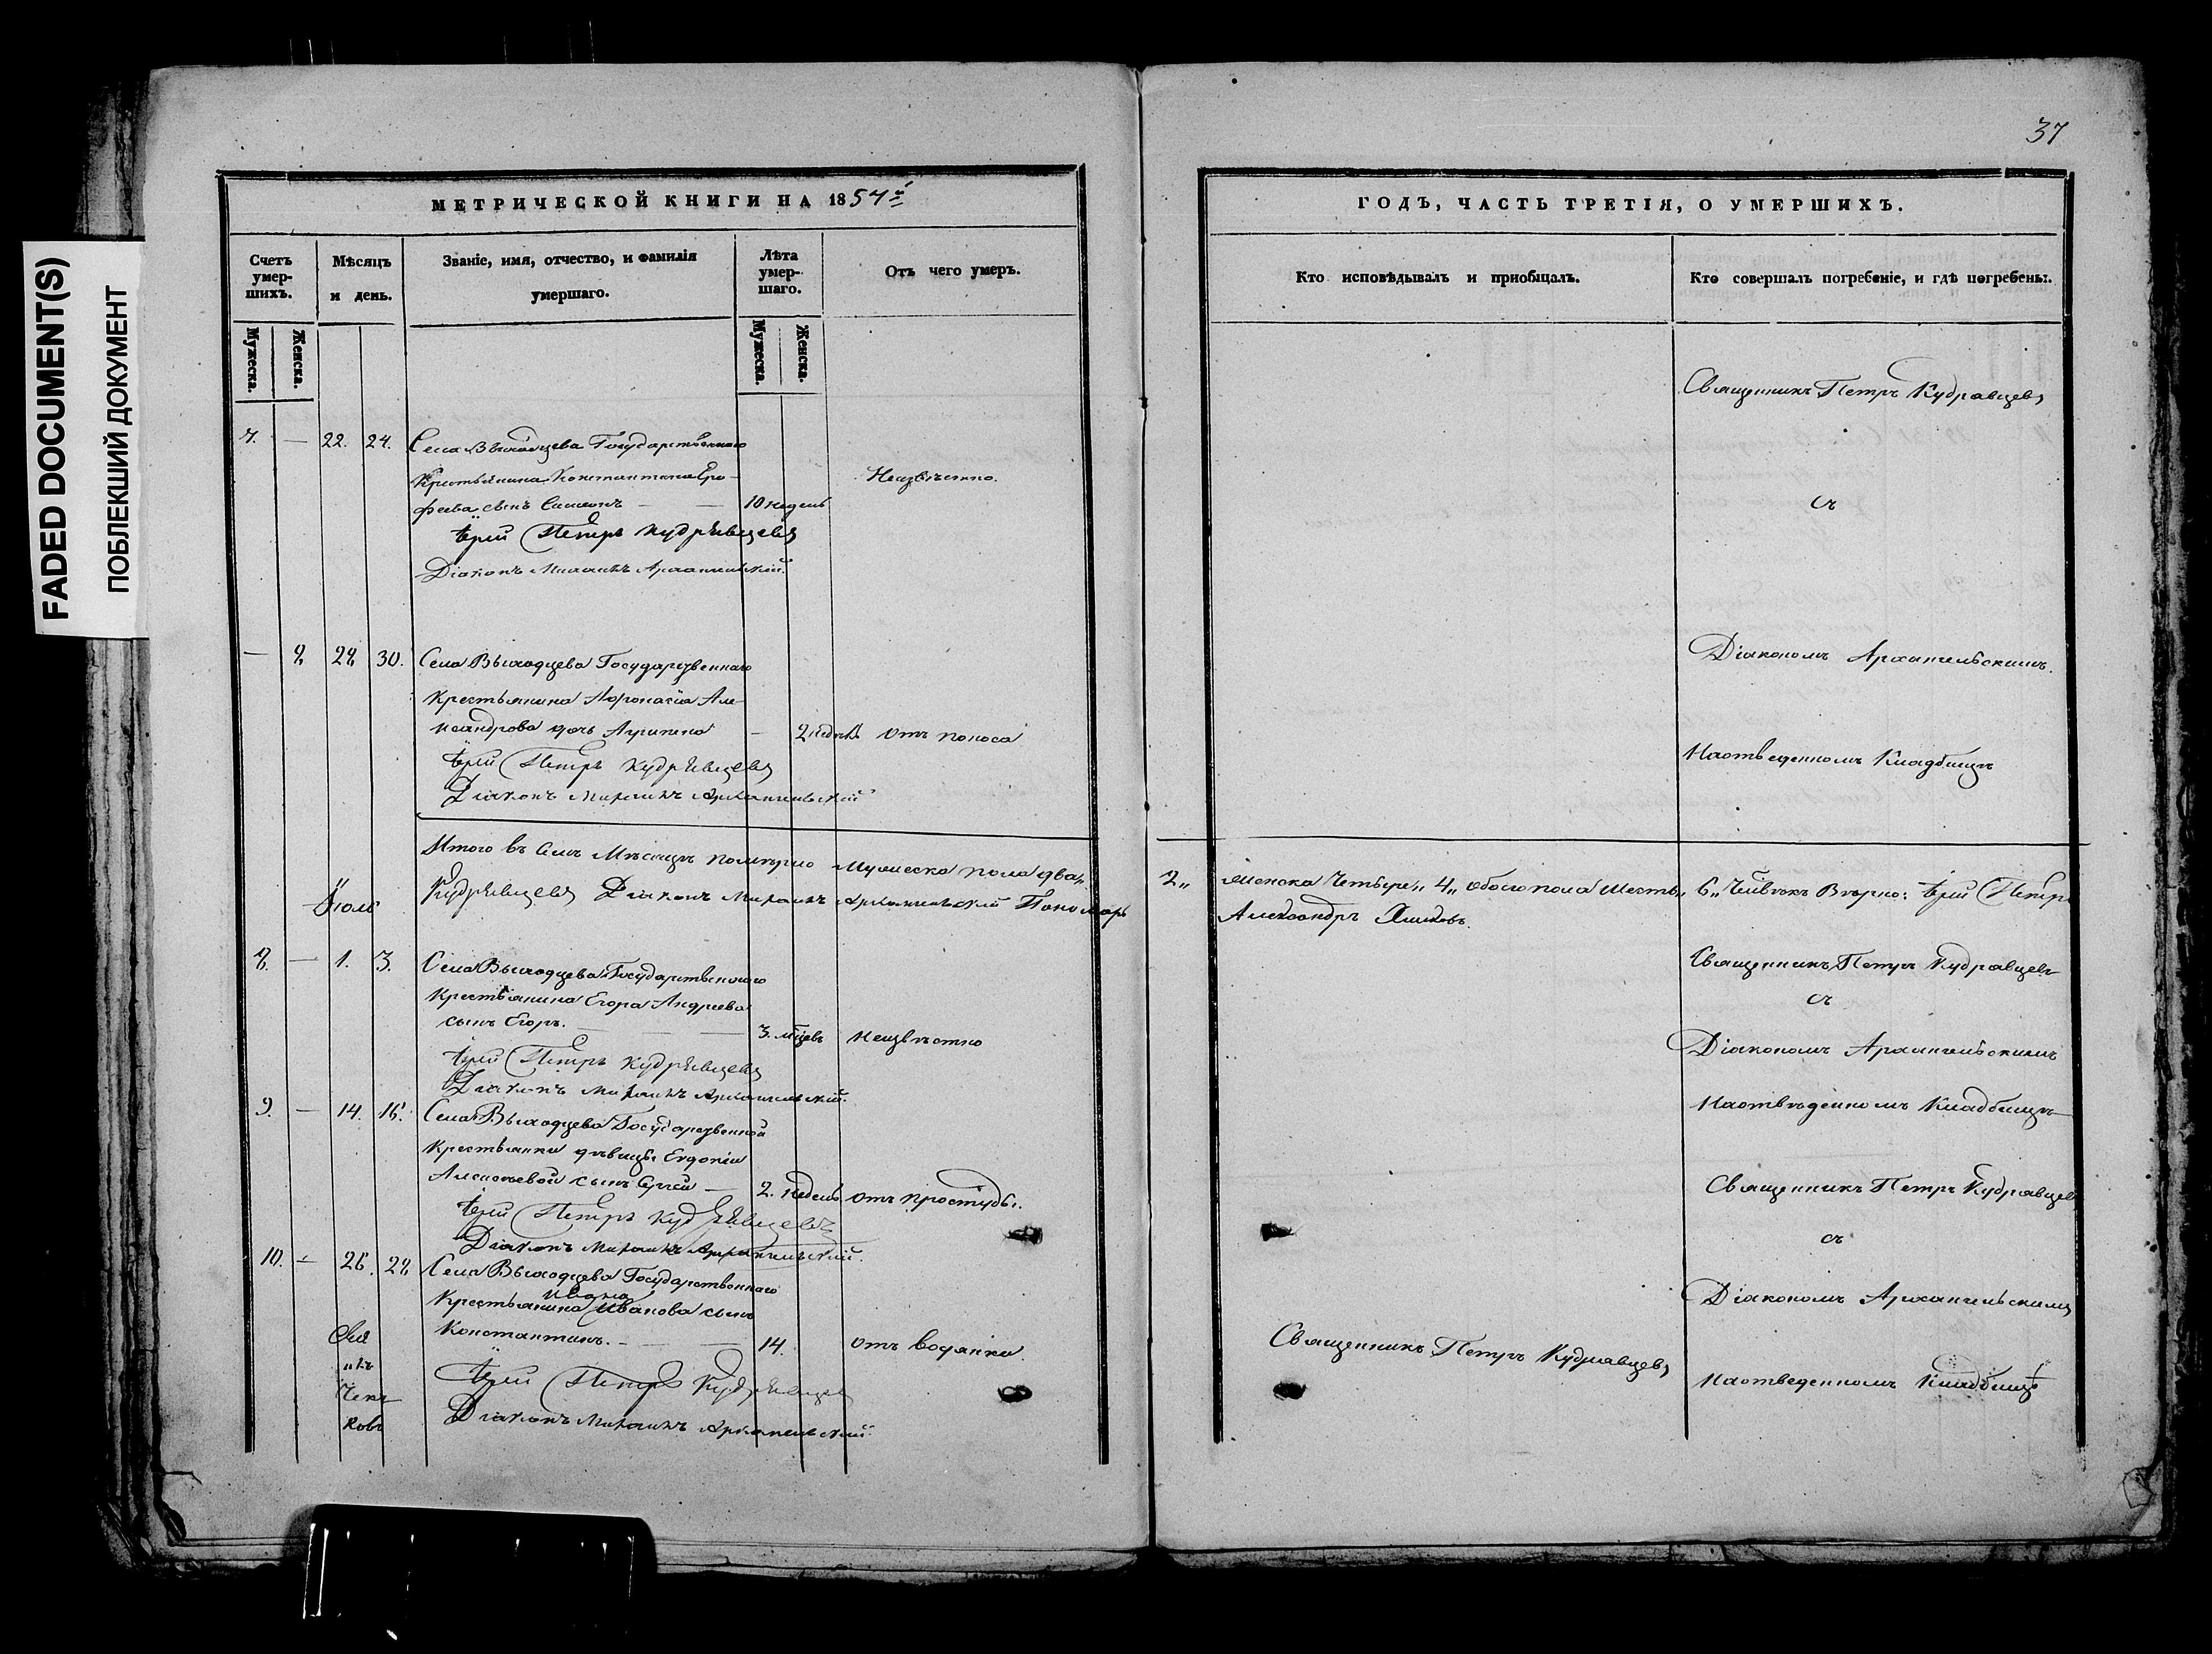 FADED DOCUMENT(S)
ПОБЛЕКШИЙ ДОКУМЕНТ
37
МЕТРИЧЕСКОЙ КНИГИ НА 1854й
Счетъ умер-шихъ.
Мужеска.
Женска.
Мѣсяцъ и день.
Званіе, имя, отчество, и фамилія умершаго.
Лѣта умер-шаго.
Мужеска.
Женска.
Отъ чего умеръ.
ГОДЪ, ЧАСТЬ ТРЕТІЯ, О УМЕРШИХЪ.
Кто исповѣдывалъ и пріобщалъ.
Кто совершалъ погребеніе, и гдѣ погребены.
7. — 22. 24. Села Выходцева Государственнаго
Крестьянина Константина Еро-
феева сынъ Симеонъ — — 10 недель Неизвѣстно.
Іерей Петръ Кудрявцевъ
Діаконъ Михаилъ Архангельскій.
Священникъ Петръ Кудравцевъ
съ
Діакономъ Архангельскимъ.
Наотведенномъ Кладбищѣ
— 8 28 30. Села Выходцева Государственнаго
Крестьянина Афонасія Але-
ксандрова дочь Агрипена — 2 недѣль Отъ поноса
Іерей Петръ Кудрявцевъ
Діаконъ Михаилъ Архангельскій
Итого въ Семъ Мѣсяцѣ померло Мужеска пола два„ 2„ женска Четыре„ 4„ Обоего пола Шесть„ 6„ Человѣкъ Вѣрно: Іерей Петръ
Кудрявцевъ Діаконъ Михаилъ Архангельскій Пономарь Александръ
Іюль
8. — 1. 3. Села Выходцева Государственнаго
Крестьянина Егора Андреева
сынъ Егоръ. — — 3. мѣсцевъ Неизвѣстно
Іерей Петръ Кудрявцевъ
Діаконъ Михаилъ Архангельскій.
Священникъ Петръ Кудравцевъ
съ
Діакономъ Архангельскимъ
Наотвѣденномъ Кладбищѣ
9. — 14. 16. Села Выходцева Государственной
Крестьянки дѣвицы Евдокіи
Алексѣевой сынъ Сергѣй — 2. недель отъ простуды.
Іерей Петръ Кудрявцевъ
Діаконъ Михаилъ Архангельскій.
Священникъ Петръ Кудравцевъ
съ
Діакономъ Архангельскимъ
Наотведенномъ Кладбищѣ
10. — 26. 28 Села Выходцева Государственнаго
Ивана
Крестьянина Иванова сынъ
Константинъ. — — 14. отъ водянки.
Священникъ Петръ Кудравцевъ
Іерей Петръ Кудрявцевъ
Діаконъ Михаилъ Архангельскій.